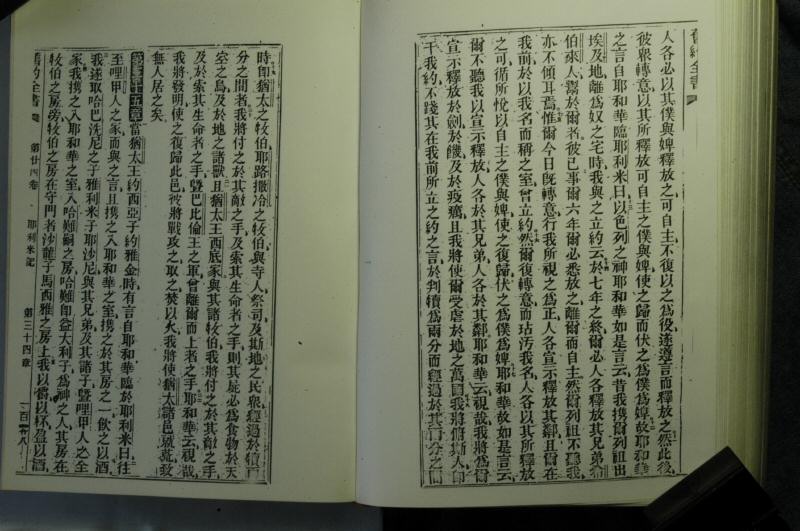 舊約全書
人各必以其僕與婢釋放之可自主不復以之為役遂遵言而釋放之然此後
彼衆轉意以其所釋放可自主之僕與婢使之歸而伏之為僕為婢故耶和華
之言自耶和華臨耶利米曰以色列之神耶和華如是言云昔我攜爾列祖出
埃及地離為奴之宅時我與之立約云於七年之終爾必人各釋放其兄弟希
伯來人鬻於爾者彼已事爾六年爾必悉放之離爾而自主然爾列祖不聽我
亦不傾耳焉惟爾今日旣轉意行我所視之為正人各宣示釋放其鄰且爾在
我前於以我名而稱之室曾立約然爾復轉意而玷汚我名人各以其所釋放
之可循所悅以自主之僕與婢使之復歸伏之為僕為婢耶和華故如是言云
爾不聽我以宣示釋放人各於其兄弟人各於其鄰耶和華云視哉我將為爾
宣示釋放於劍於饑及於疫癘且我將使爾受虐於地之萬國我將付斯人卽
干我約不踐其在我前所立之約之言於判犢為兩分而經過於其兩分之間
時卽猶太之牧伯耶路撒冷之牧伯與寺人祭司及斯地之民衆經過於犢兩
分之間者我將付之於其敵之手及索其生命者之手則其屍必為食物於天
空之鳥及於地之諸獸且猶太王西底家與其諸牧伯我將付之於其敵之手
及於索其生命者之手曁巴比倫王之軍曾離爾而上者之手耶和華云視哉
我將發明使之復歸此邑彼將戰攻之取之焚以火我將使猶太諸邑就荒致
無人居之矣
第三十五章當猶太王約西亞子約雅金時有言自耶和華臨於耶利米曰往
至哩甲人之家而與之言且攜之入耶和華之室攜之於其房之一飲之以酒
我遂取哈巴洗尼之子雅利米子耶沙尼與其兄弟及其諸子曁哩甲人之全
家我攜之入耶和華之室入哈難嗣之房哈難卽益大利子為神之人其房在
牧伯之房旁牧伯之房在守門者沙龍子馬西雅之房上我以觴以杯盈以酒
舊約全書 第廿四卷 耶利米記 第三十四章 一百零八